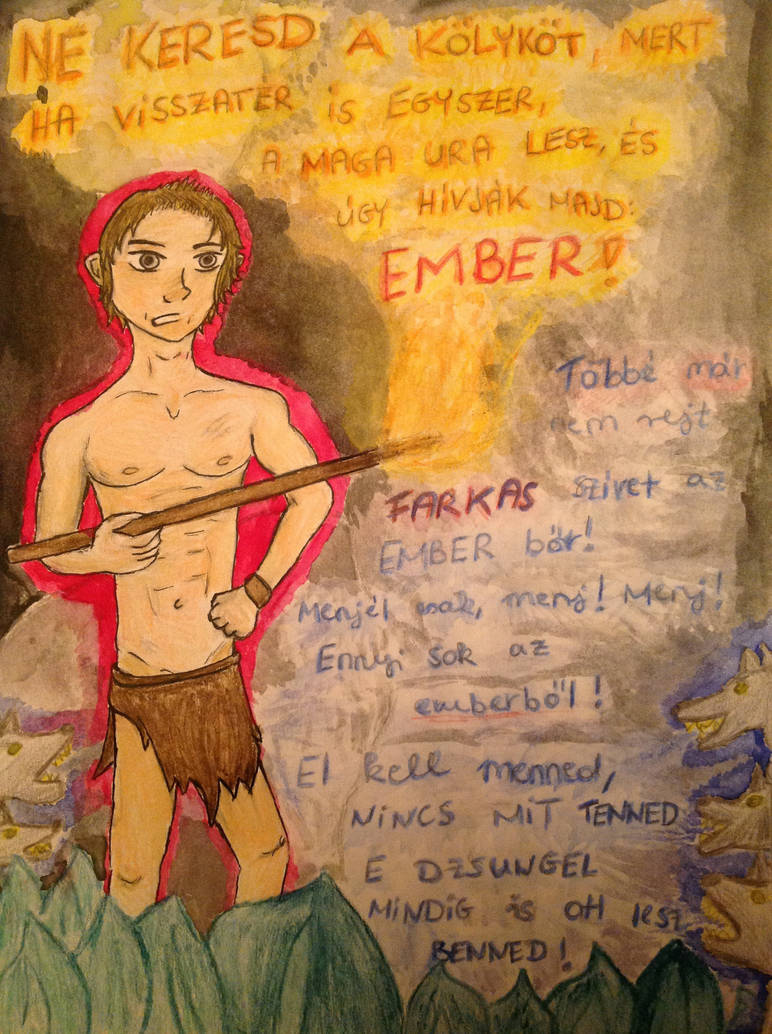 NE KERESD A KÖLYKÖT, MERT
HA VISSZATÉR IS EGYSZER,
A MAGA URA LESZ, ÉS
ÚGY HÍVJÁK MAJD:
EMBER!
Többé már
nem rejt
FARKAS szívet az
EMBER bőr!
Menjél csak, menj! Menj!
Ennyi sok az
emberből!
El kell menned,
NINCS MIT TENNED
E DZSUNGEL
MINDIG IS OTT lesz
BENNED!